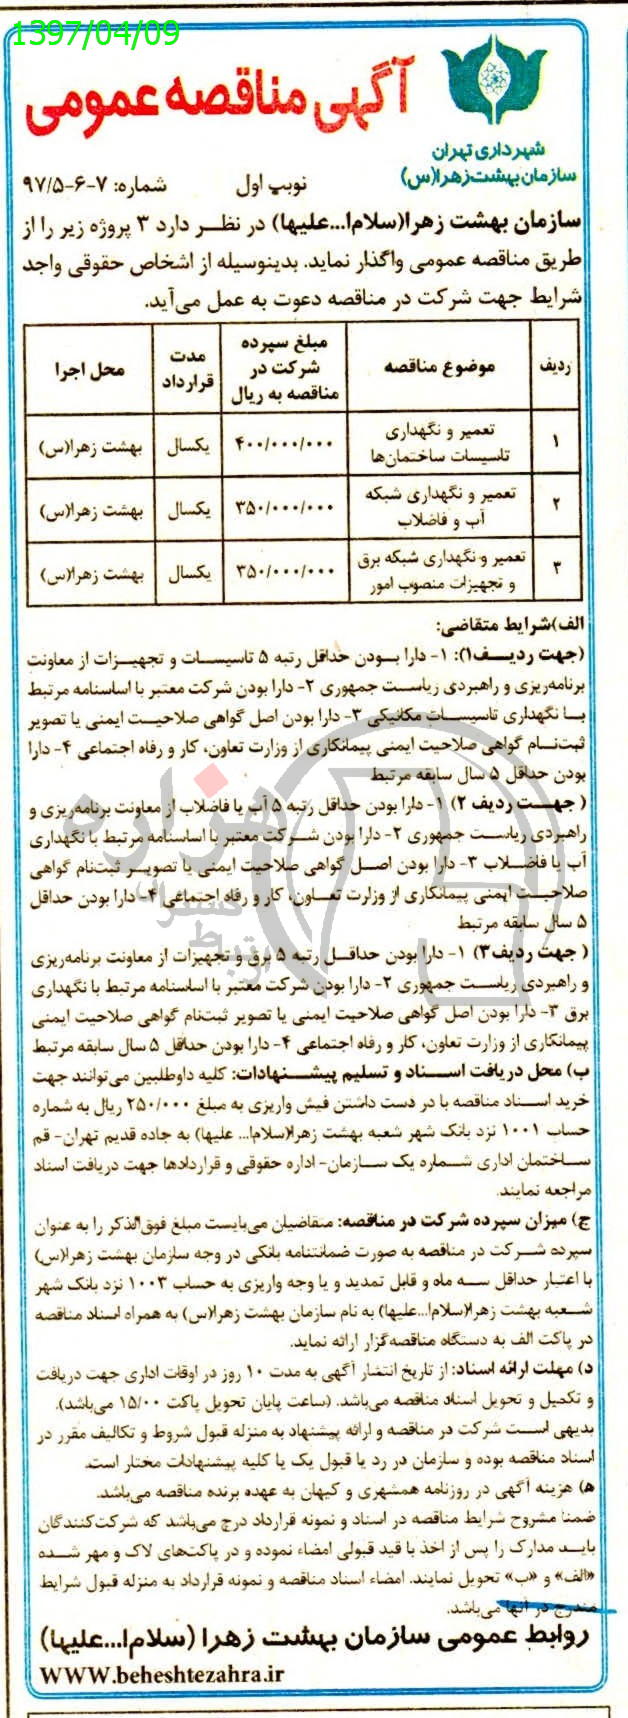 1397/04/09
آگهی مناقصه عمومی
شهرداری تهران
سازمان بهشت‌زهرا(س)
نوبت اول
شماره: ۷-۶-۹۷/۵
سازمان بهشت زهرا(سلام‌ا...علیها) در نظر دارد ۳ پروژه زیر را از
طریق مناقصه عمومی واگذار نماید. بدینوسیله از اشخاص حقوقی واجد
شرایط جهت شرکت در مناقصه دعوت به عمل می‌آید.
ردیف | موضوع مناقصه | مبلغ سپرده شرکت در مناقصه به ریال | مدت قرارداد | محل اجرا
۱ | تعمیر و نگهداری تاسیسات ساختمان‌ها | ۴۰۰/۰۰۰/۰۰۰ | یکسال | بهشت زهرا(س)
۲ | تعمیر و نگهداری شبکه آب و فاضلاب | ۳۵۰/۰۰۰/۰۰۰ | یکسال | بهشت زهرا(س)
۳ | تعمیر و نگهداری شبکه برق و تجهیزات منصوب امور | ۳۵۰/۰۰۰/۰۰۰ | یکسال | بهشت زهرا(س)
الف)شرایط متقاضی:
(جهت ردیف۱): ۱- دارا بودن حداقل رتبه ۵ تاسیسات و تجهیزات از معاونت
برنامه‌ریزی و راهبردی ریاست جمهوری ۲- دارا بودن شرکت معتبر با اساسنامه مرتبط
با نگهداری تاسیسات مکانیکی ۳- دارا بودن اصل گواهی صلاحیت ایمنی یا تصویر
ثبت‌نام گواهی صلاحیت ایمنی پیمانکاری از وزارت تعاون، کار و رفاه اجتماعی ۴- دارا
بودن حداقل ۵ سال سابقه مرتبط
( جهت ردیف ۲) ۱- دارا بودن حداقل رتبه ۵ آب یا فاضلاب از معاونت برنامه‌ریزی و
راهبردی ریاست جمهوری ۲- دارا بودن شرکت معتبر با اساسنامه مرتبط با نگهداری
آب یا فاضلاب ۳- دارا بودن اصل گواهی صلاحیت ایمنی یا تصویر ثبت‌نام گواهی
صلاحیت ایمنی پیمانکاری از وزارت تعاون، کار و رفاه اجتماعی ۴- دارا بودن حداقل
۵ سال سابقه مرتبط
( جهت ردیف۳) ۱- دارا بودن حداقل رتبه ۵ برق و تجهیزات از معاونت برنامه‌ریزی
و راهبردی ریاست جمهوری ۲- دارا بودن شرکت معتبر با اساسنامه مرتبط با نگهداری
برق ۳- دارا بودن اصل گواهی صلاحیت ایمنی یا تصویر ثبت‌نام گواهی صلاحیت ایمنی
پیمانکاری از وزارت تعاون، کار و رفاه اجتماعی ۴- دارا بودن حداقل ۵ سال سابقه مرتبط
ب) محل دریافت اسناد و تسلیم پیشنهادات: کلیه داوطلبین می‌توانند جهت
خرید اسناد مناقصه با در دست داشتن فیش واریزی به مبلغ ۲۵۰/۰۰۰ ریال به شماره
حساب ۱۰۰۱ نزد بانک شهر شعبه بهشت زهرا(سلام‌ا... علیها) به جاده قدیم تهران- قم
ساختمان اداری شماره یک سازمان- اداره حقوقی و قراردادها جهت دریافت اسناد
مراجعه نمایند.
ج) میزان سپرده شرکت در مناقصه: متقاضیان می‌بایست مبلغ فوق‌الذکر را به عنوان
سپرده شرکت در مناقصه به صورت ضمانتنامه بانکی در وجه سازمان بهشت زهرا(س)
با اعتبار حداقل سه ماه و قابل تمدید و یا وجه واریزی به حساب ۱۰۰۳ نزد بانک شهر
شعبه بهشت زهرا(سلام‌ا...علیها) به نام سازمان بهشت زهرا(س) به همراه اسناد مناقصه
در پاکت الف به دستگاه مناقصه‌گزار ارائه نماید.
د) مهلت ارائه اسناد: از تاریخ انتشار آگهی به مدت ۱۰ روز در اوقات اداری جهت دریافت
و تکمیل و تحویل اسناد مناقصه می‌باشد. (ساعت پایان تحویل پاکت ۱۵/۰۰ می‌باشد).
بدیهی است شرکت در مناقصه و ارائه پیشنهاد به منزله قبول شروط و تکالیف مقرر در
اسناد مناقصه بوده و سازمان در رد یا قبول یک یا کلیه پیشنهادات مختار است.
ه) هزینه آگهی در روزنامه همشهری و کیهان به عهده برنده مناقصه می‌باشد.
ضمنا مشروح شرایط مناقصه در اسناد و نمونه قرارداد درج می‌باشد که شرکت‌کنندگان
باید مدارک را پس از اخذ با قید قبولی امضاء نموده و در پاکت‌های لاک و مهر شده
«الف» و «ب» تحویل نمایند. امضاء اسناد مناقصه و نمونه قرارداد به منزله قبول شرایط
مندرج در آنها می‌باشد.
روابط عمومی سازمان بهشت زهرا (سلام‌ا...علیها)
WWW.beheshtezahra.ir
هزاره
گسترش
ارتباط